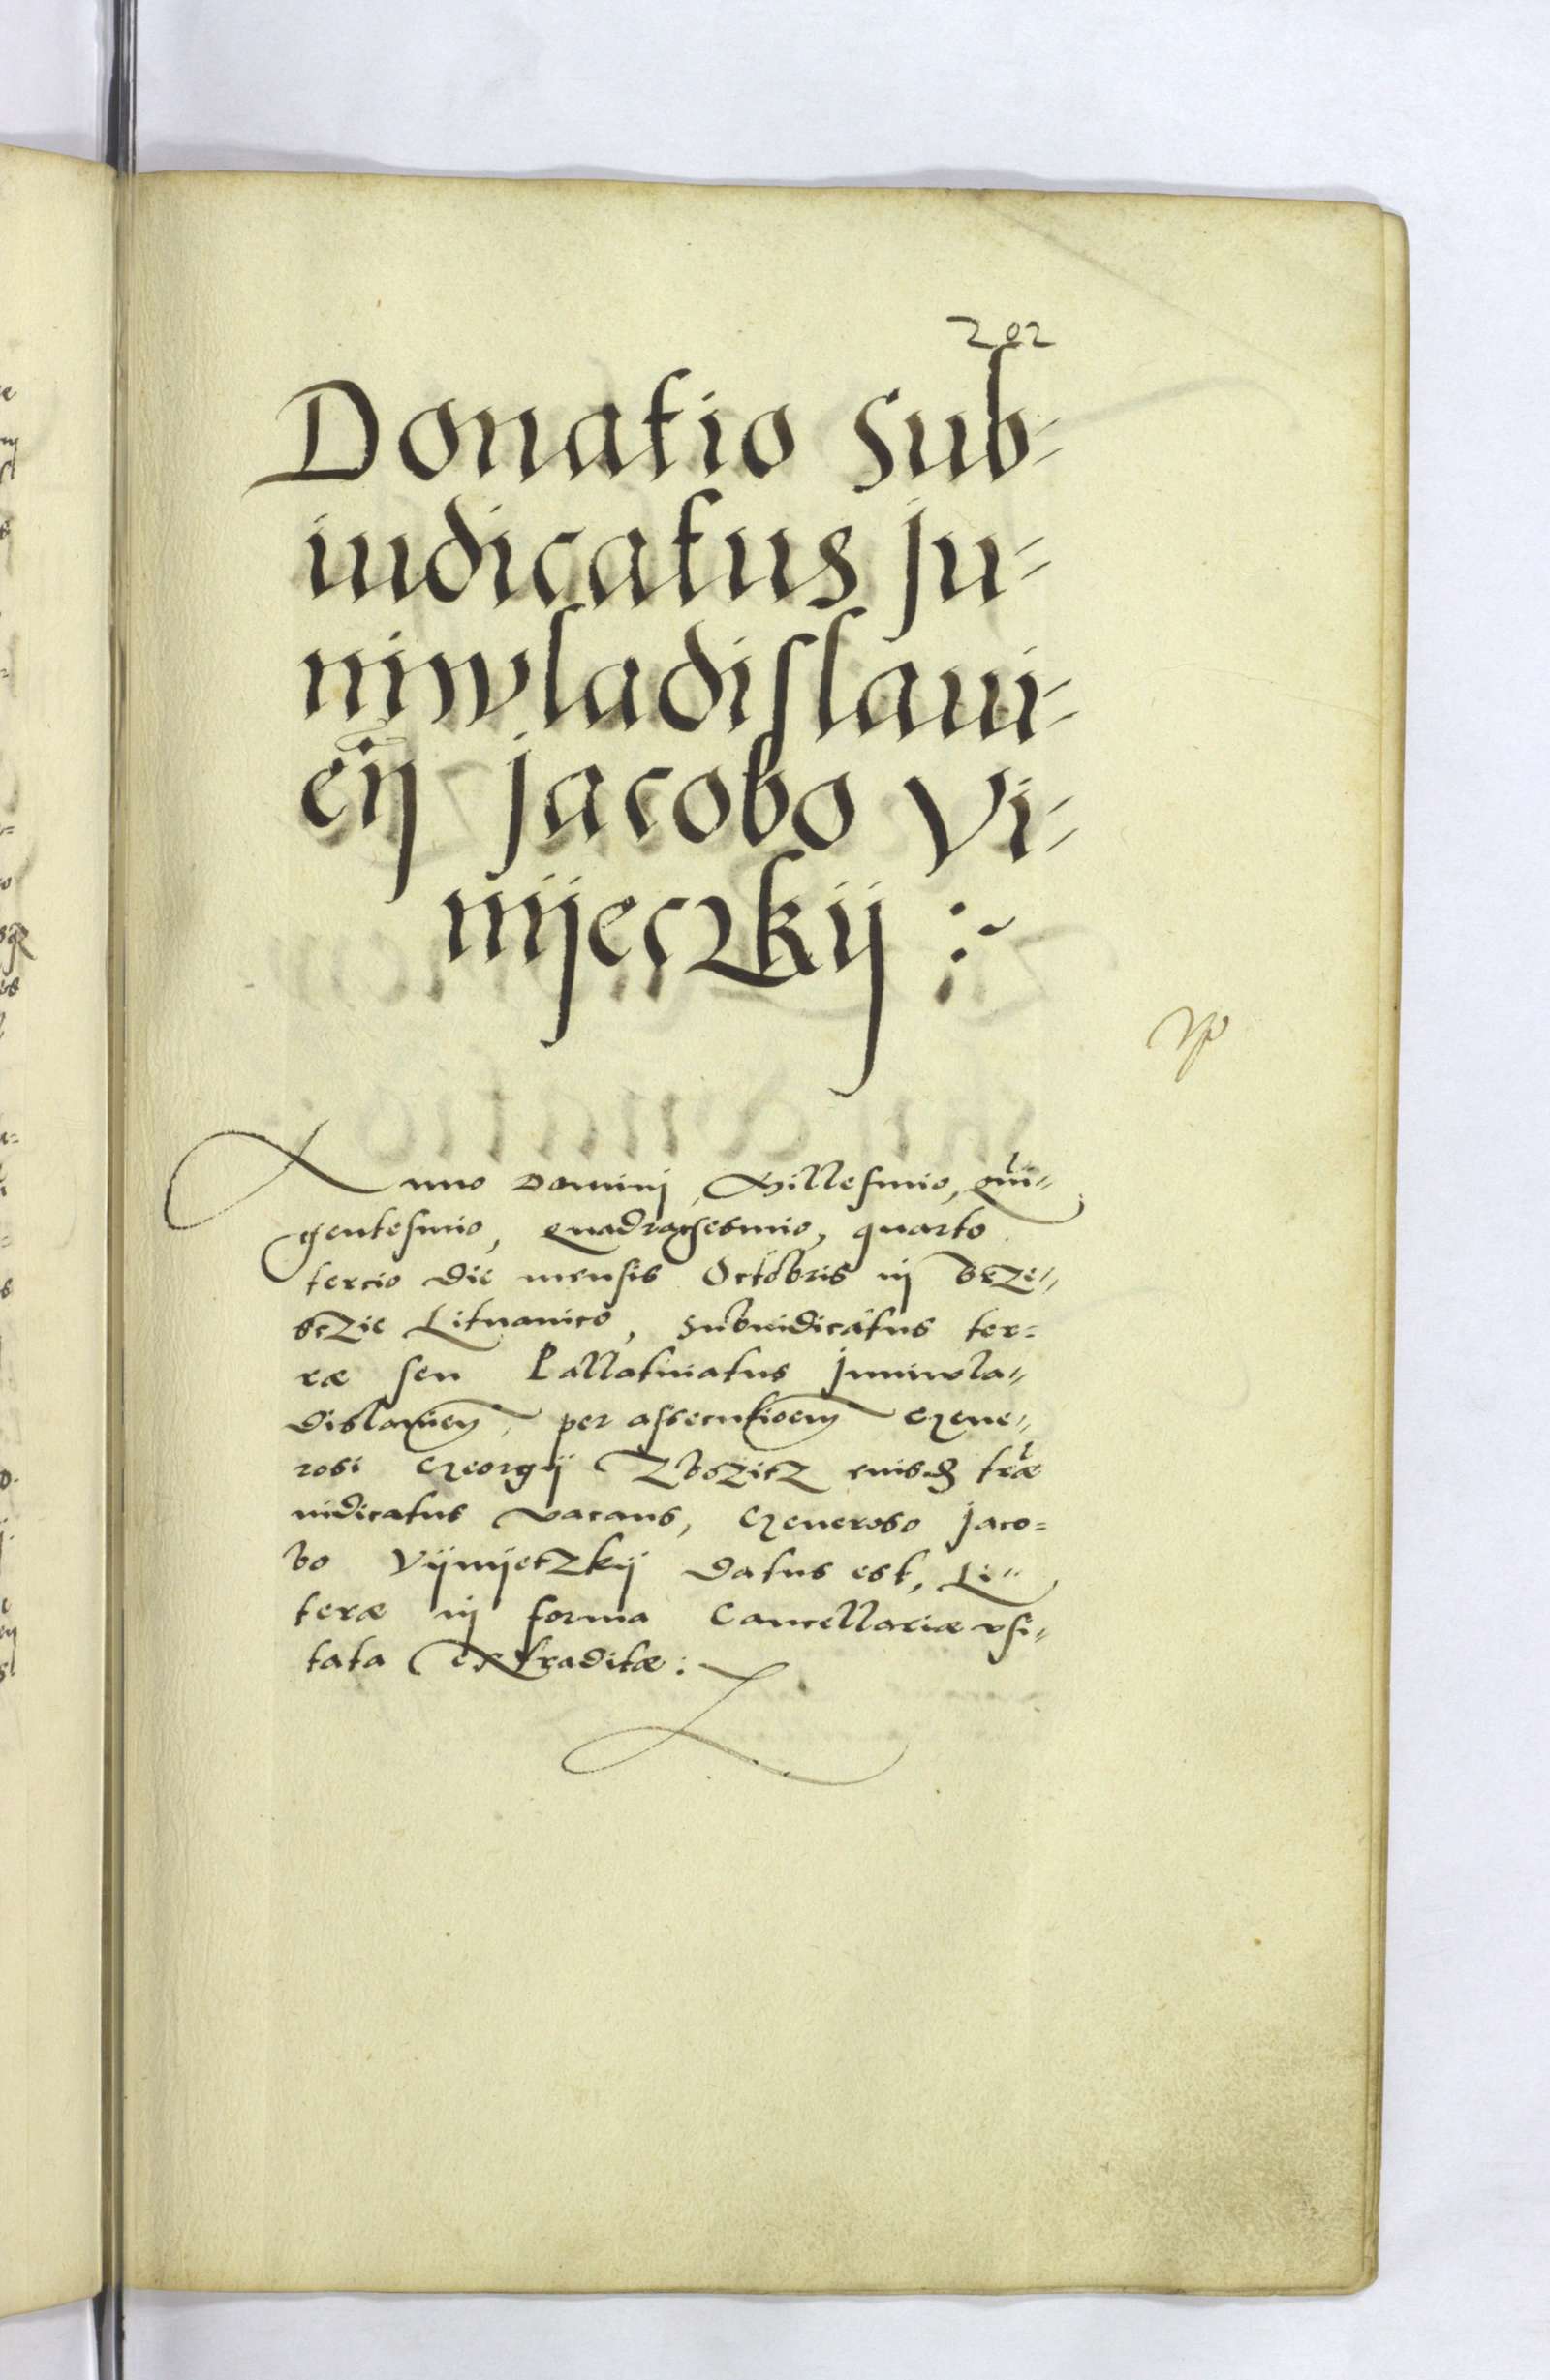 202
Donatio sub-
iudicatus Ju-
niwladislaui-
eñ Jacobo Vi-
nÿeczkÿ :~
Anno Domini, Millesimo, Qui-
gentesimo, Quadragesimo, quarto
tercio die mensis Octobris in brze-
sczie Lituanico, subiudicatus ter-
ræ seu Pallatinatus Juniwla-
dislauien, per assecutioem Gene-
rosi Georgÿ eiusdꝫ træ
iudicatus vacans, Generoso Jaco-
bo Vÿnÿetzkÿ datus est, Li-
teræ in forma Cancellariæ vsi-
tata extraditæ: